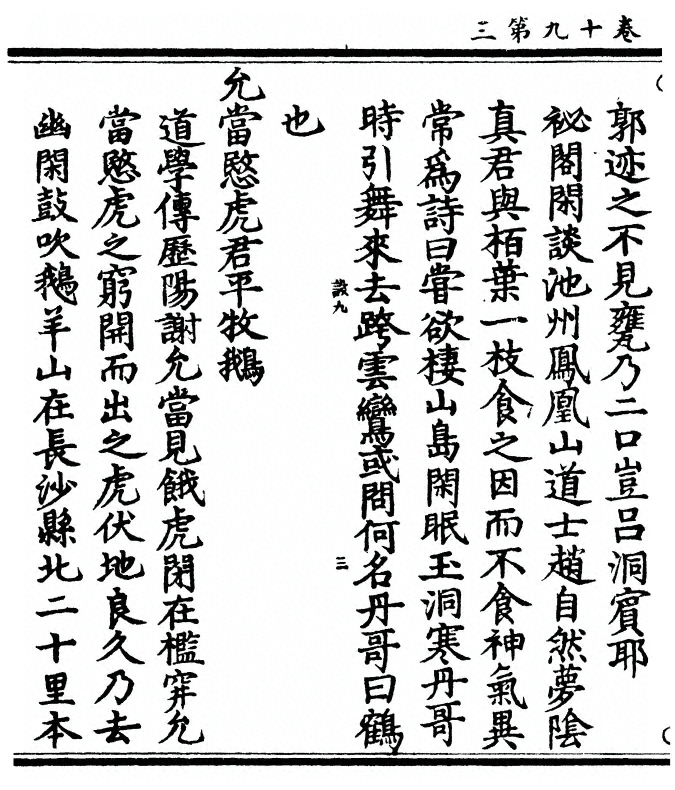 卷十九第三
郭迹之不見甕乃二口豈呂洞賓耶
祕閣閑談池州鳳凰山道士趙自然夢陰
真君與栢葉一枝食之因而不食神氣異
常爲詩曰甞欲棲山島閑眠玉洞寒丹哥
時引舞來去跨雲鸞或問何名丹哥曰鶴
談九 三
也
允當愍虎君平牧鵝
道學傳歷陽謝允當見餓虎閉在檻穽允
當愍虎之窮開而出之虎伏地良久乃去
幽閑鼓吹鵝羊山在長沙縣北二十里本